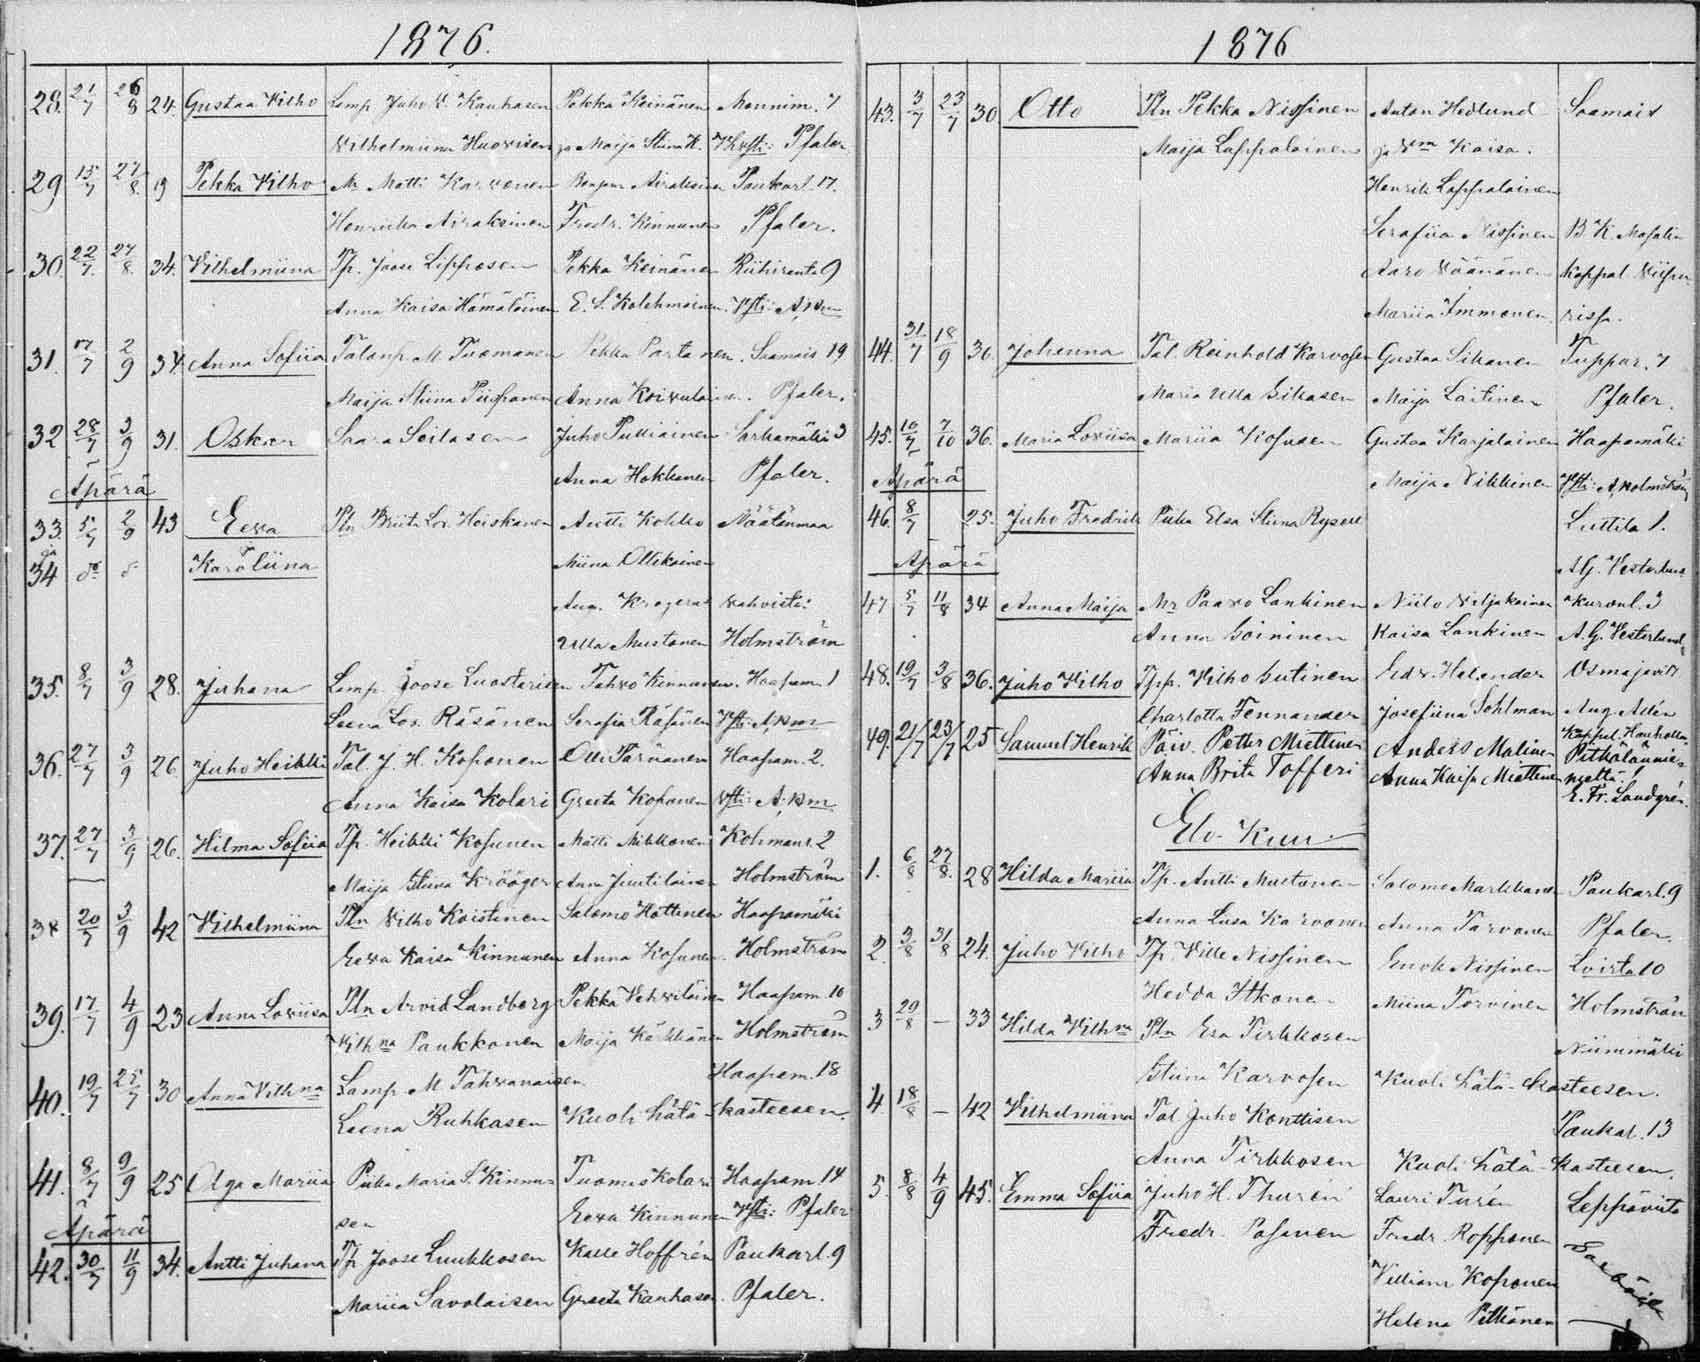 1876.
28. 21/7 26/8 24. Gustaa Vilho Lamp. Juho V. Kauhasen Pekka Keinänen Mannim. 7
Vilhelmiina Huovisen ja Maija Stiina K. Pfaler
29 15/7 27/8 19 Pekka Vilho Mr Matti Karvonen Airaksinen Paukarl. 17.
Henrika Airaksinen Fredr. Kinnunen Pfaler.
30. 22/7 27/8. 34. Vilhelmiina Tp. Joose Lipposen Pekka Keinänen Riihiranta 9
Anna Kaisa Hämäläinen E. S. Kolehmainen.
31. 17/7 2/9 34. Anna Sofiia M. Tuomanen Pekka Partanen. Saamais 19
Maija Stiina Anna Koivulainen. Pfaler.
32 28/7 3/9 31. Oskar Saara Seilasen Juho Pulliainen Sarkamäki 3
Äpärä Anna Hokkanen Pfaler.
33. 5/7 2/9 43 Eeva Ptn Briita Lov. Heiskanen Antti Kohko Näätänmaa
ja
34 Karoliina Miina Ollikainen
Aug. Krogerus vahvisti:
Ulla Mustonen Holmström
35. 8/7 3/9 28. Juhana Lamp. Joose Luostarisen Tahvo Kinnunen. Haapam. 1
Leena Lov. Räsänen Serafia Räsänen
36. 27/7 3/9 26. Juho Heikki Tal. J. H. Koponen Olli Tarvanen Haapam. 2.
Anna Kaisa Kolari Greeta Koponen
37. 27/7 3/9 26. Hilma Sofiia Tp. Heikki Kosunen Matti Mikkonen Kohmans. 2
Maija Stiina Krööger Anna Juutilainen Holmström
38 20/7 3/9 42 Vilhelmiina Ptn Vilho Koistinen Salomo Hottinen Haapamäki
Eeva Kaisa Kinnunen Anna Kosunen. Holmström
39. 17/7 4/9 23 Anna Loviisa Ptn Arvid Landberg Pekka Vehviläinen Haapam. 16
Vilhna Paukkonen Maija Karkkänen Holmström
40. 19/7 25/7 30 Anna Vilhna Lamp. M Tahvanaisen Haapam. 18
Leena Ruhkasen Kuoli hätä-kasteesen.
41. 8/7 9/9 25 Olga Mariia Piika Maria S. Kinnu- Tuomas Kolari Haapam 14
Äpärä sen Eeva Kinnunen Vsti: Pfaler
42. 30/7 11/9 34. Antti Juhana Tp. Joose Luukkosen Kalle Hoffrén Paukarl. 9
Mariia Savolaisen Greeta Kauhasen. Pfaler.
1876
43. 3/7 23/7 30 Otto Ptn Pekka Nissinen Anton Hedlund Saamais
Maija Lappalainen ja Vm Kaisa.
Henrik Lappalainen
Serafiia Nissinen B. K.
Aaro Väänänen kappal. Viipu-
Mariia Immonen. rissa.
44. 31/7 18/9 36. Johanna Tal. Reinhold Karvosen Gustaa Sikanen Tuppur. 7
Maria Ulla Sikasen Maija Laitinen Pfaler.
45. 10/7 7/10 36. Maria Loviisa Mariia Kosusen Gustaa Karjalainen Haapamäki
Äpärä Maija Nikkinen Vsti: A. Holmström
46. 8/7 25. Juho Fredrik Piika Elsa Stiina Luttila 1.
Äpärä A. G. Vesterlund
47 5/7 11/8 34 Anna Maija Mr Paavo Lankinen Niilo Viljakainen 3
Anna Soininen Kaisa Lankinen A. G. Vesterlund
48. 19/7 3/8 36. Juho Vilho Tpp. Vilho Sutinen Edv. Helander Osmajärvi
Charlotta Fennander Josefiina Sohlman Aug. Adén
49. 21/7 23/7 25 Samuel Henrik Päiv. Petter Miettinen Anders Malinen Pitkälännie-
Anna Brita Tofferi Anna Kaisa Miettinen meltä.
E. Fr. Landgrén.
Elo-Kuu
1. 6/8 27/8. 28 Hilda Mariia Tp. Antti Mustonen Salomo Markkanen Paukarl. 9
Anna Liisa Karvonen Anna Tarvanen Pfaler.
2. 3/8 31/8 24. Juho Vilho Tp. Ville Nissinen Enok Nissinen Loista 10
Hedda Itkonen Miina Torvinen Holmström
3 29/8 — 33 Hilda Vilhna Ptn Esa Pirkkosen Niinimäki
Stiina Karvosen Kuoli hätä-kasteesen.
4. 18/8 — 42 Vilhelmiina Tal Juho Konttisen Paukarl. 13
Anna Pirkkosen Kuoli hätä-kasteesen.
5. 8/8 4/9 45. Emma Sofiia Juho H. Thurén Lauri Turén Leppävirta
Fredr. Pasanen Fredr. Ropponen
Villiam Koponen
Helena Pitkänen